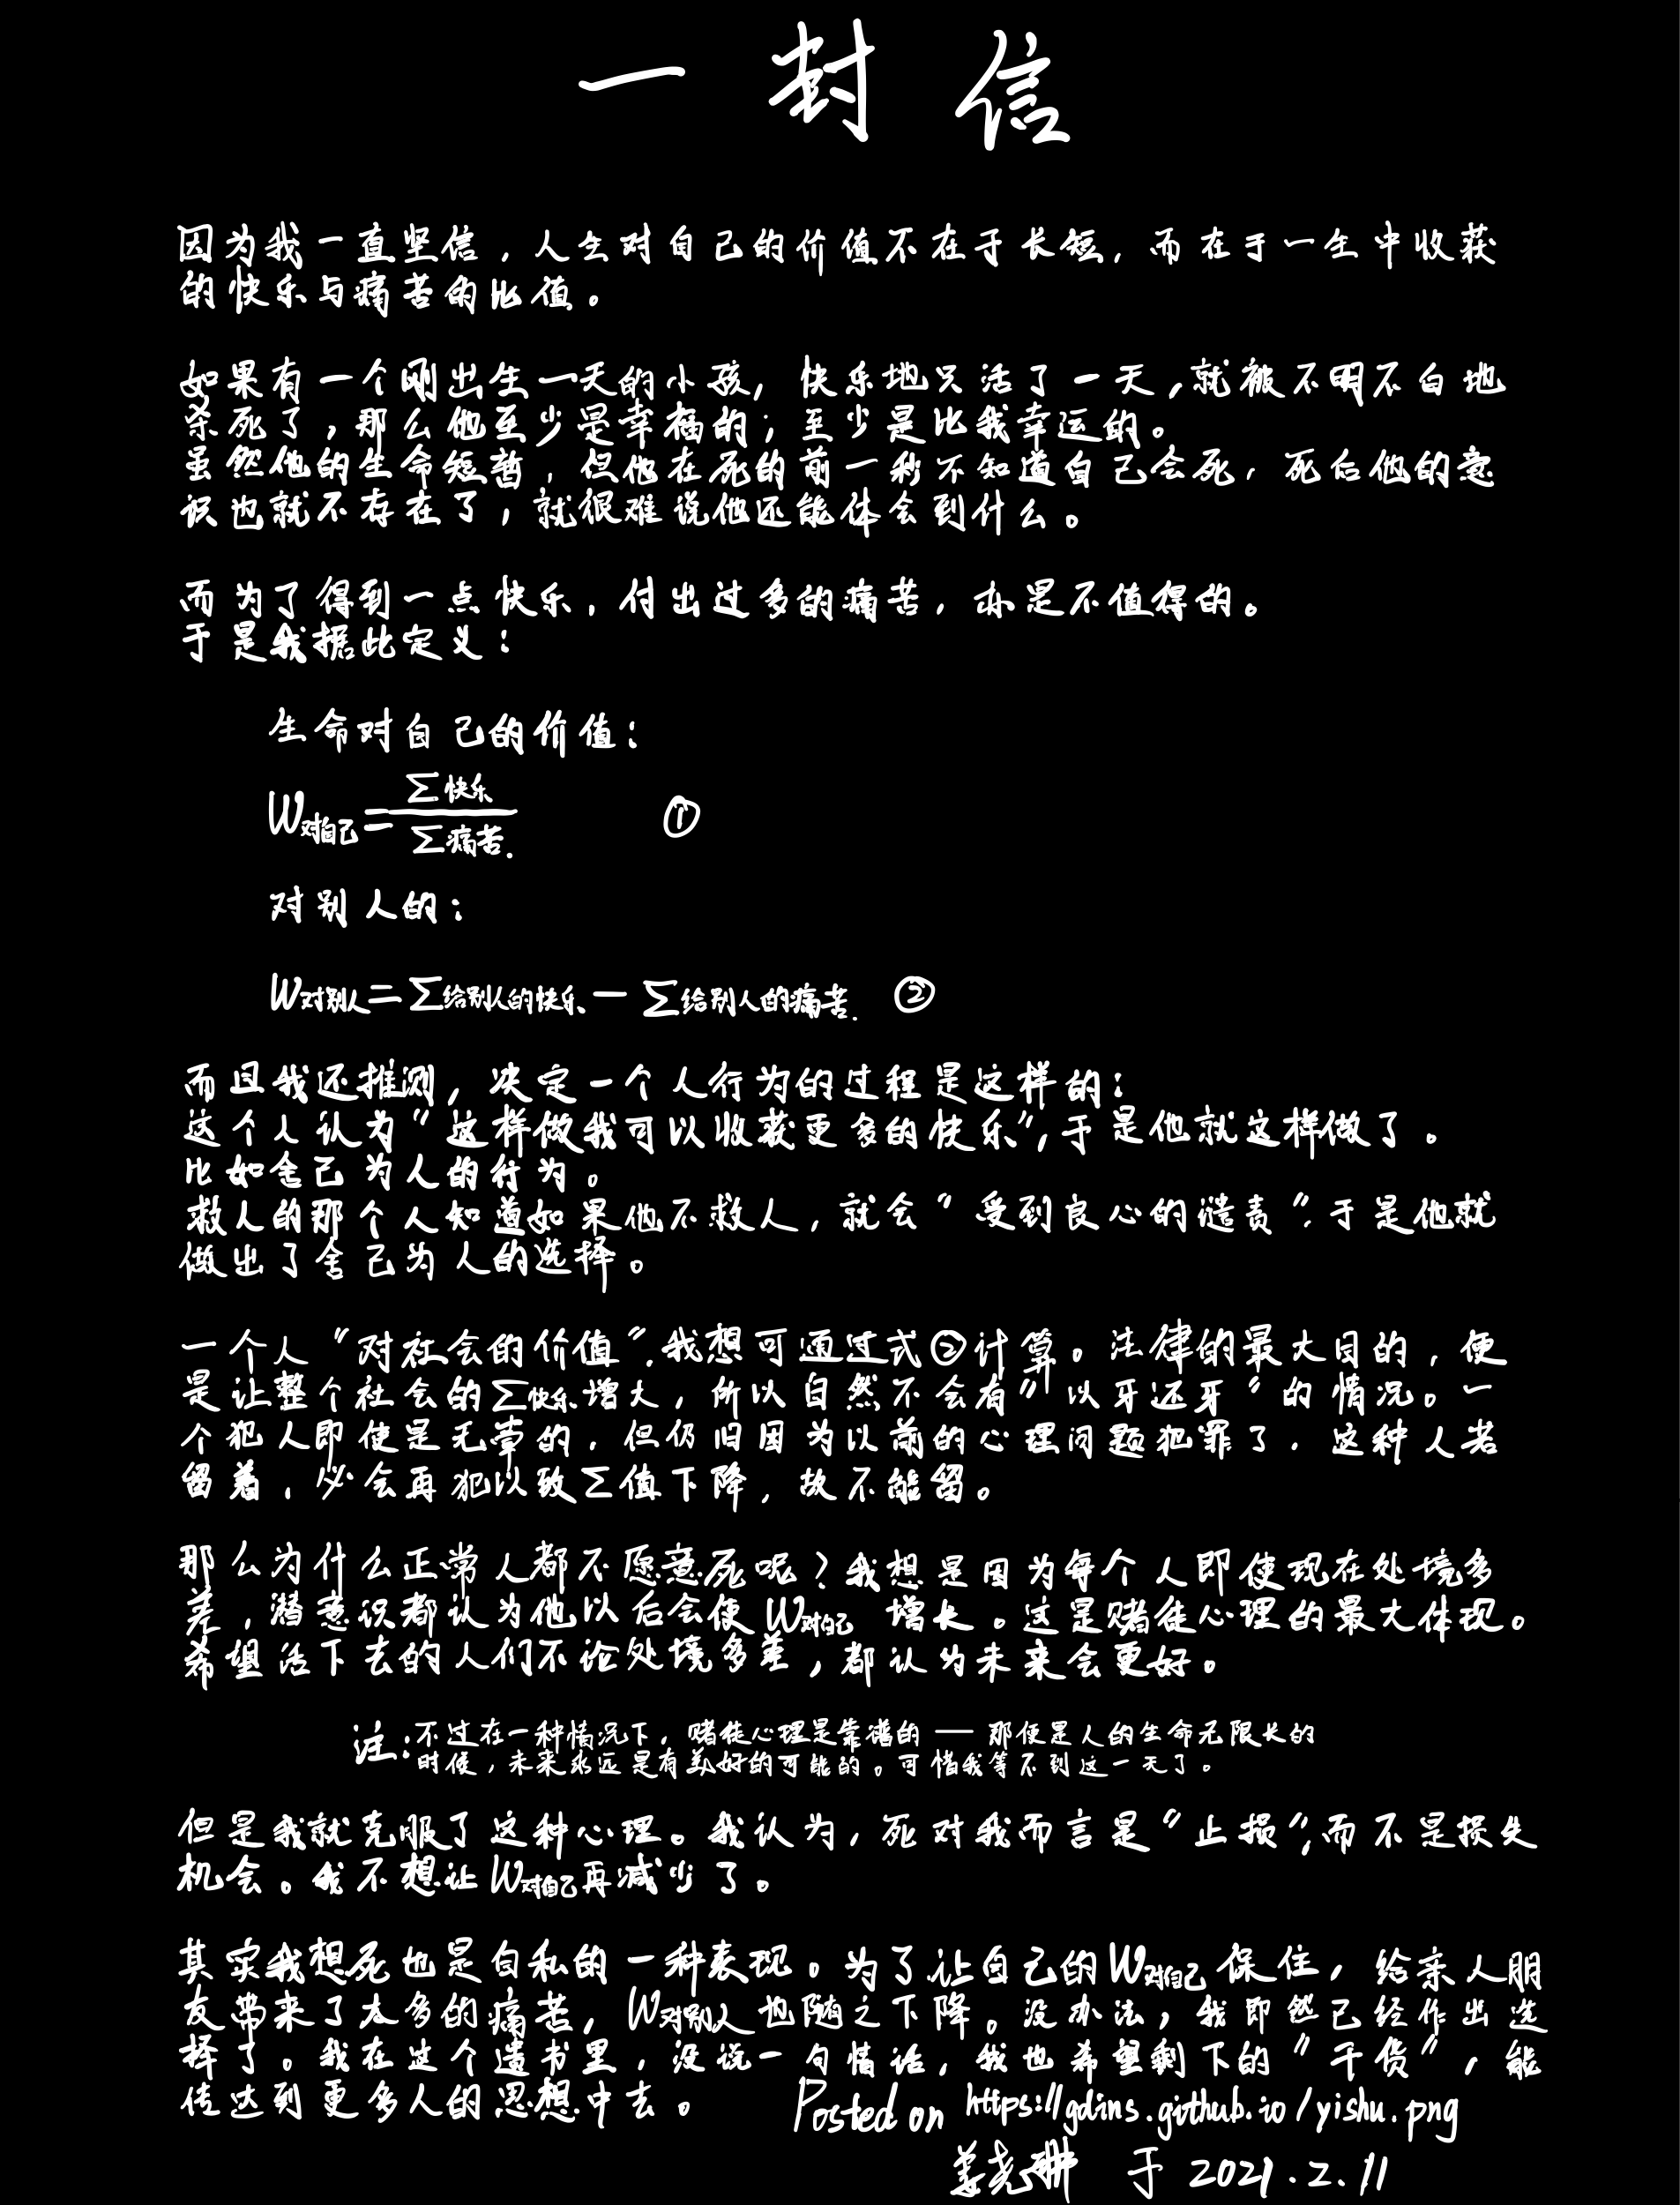 一封信
因为我一直坚信，人生对自己的价值不在于长短，而在于一生中收获
的快乐与痛苦的比值。
如果有一个刚出生一天的小孩，快乐地只活了一天，就被不明不白地
杀死了，那么他至少是幸福的；至少是比我幸运的。
虽然他的生命短暂，但他在死的前一秒不知道自己会死，死后他的意
识也就不存在了，就很难说他还能体会到什么。
而为了得到一点快乐，付出过多的痛苦，亦是不值得的。
于是我据此定义：
生命对自己的价值：
W对自己=∑快乐/∑痛苦. ①
对别人的：
W对别人=∑给别人的快乐－∑给别人的痛苦. ②
而且我还推测，决定一个人行为的过程是这样的：
这个人认为“这样做我可以收获更多的快乐”，于是他就这样做了。
比如舍己为人的行为。
救人的那个人知道如果他不救人，就会“受到良心的谴责”，于是他就
做出了舍己为人的选择。
一个人“对社会的价值”，我想可通过式②计算。法律的最大目的，便
是让整个社会的∑快乐增大，所以自然不会有“以牙还牙”的情况。一
个犯人即使是无辜的，但仍旧因为以前的心理问题犯罪了，这种人若
留着，必会再犯以致∑值下降，故不能留。
那么为什么正常人都不愿意死呢？我想是因为每个人即使现在处境多
差，潜意识都认为他以后会使W对自己 增长。这是赌徒心理的最大体现。
希望活下去的人们不论处境多差，都认为未来会更好。
注：不过在一种情况下，赌徒心理是靠谱的——那便是人的生命无限长的
时候，未来永远是有美好的可能的。可惜我等不到这一天了。
但是我就克服了这种心理。我认为，死对我而言是“止损”，而不是损失
机会。我不想让W对自己再减少了。
其实我想死也是自私的一种表现。为了让自己的W对自己保住，给亲人朋
友带来了太多的痛苦，W对别人也随之下降。没办法，我即然已经作出选
择了。我在这个遗书里，没说一句情话，我也希望剩下的“干货”，能
传达到更多人的思想中去。 Posted on https://gdins.github.io/yishu.png
姜尧 于 2021.2.11